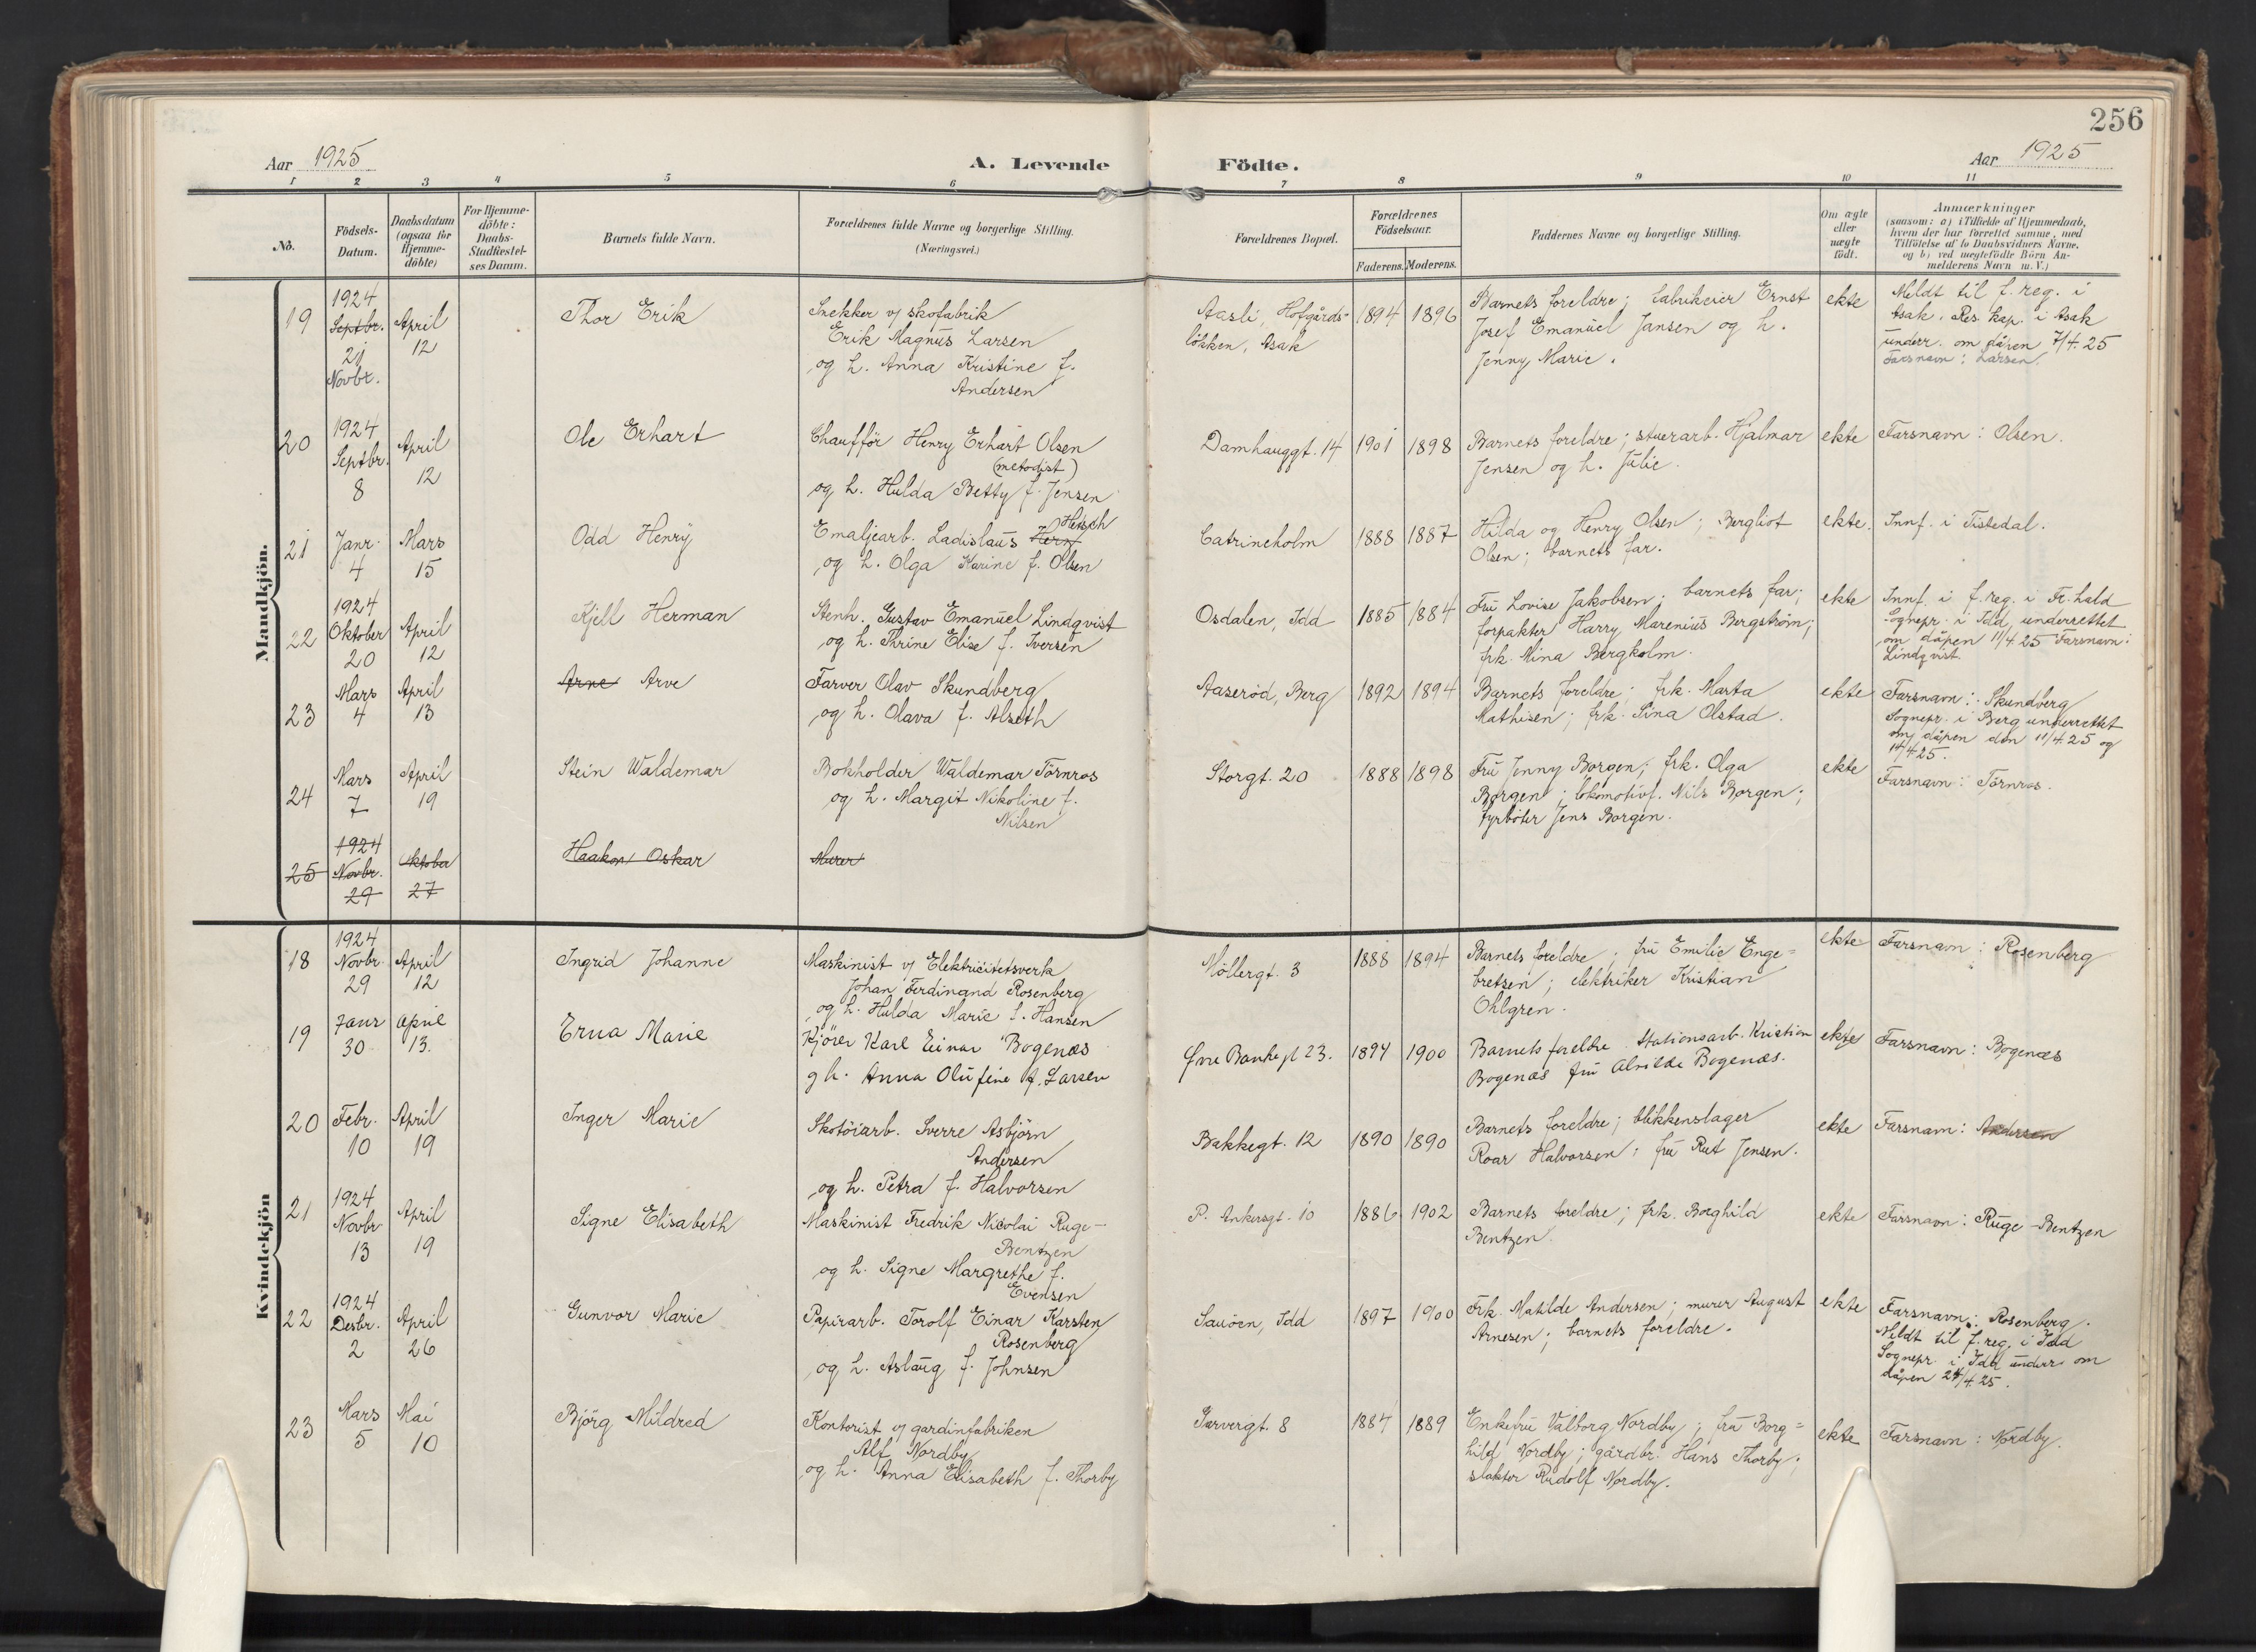 256
Aar 1925
A. Levende Födte.
Aar 1925
1 2 3 4 5 6 7 8 9 10 11
No.
Födsels-
Datum.
Daabsdatum
(ogsaa for
Hjemme-
döbte)
For Hjemme-
döbte:
Daabs-
Stadfæstel-
ses Datum.
Barnets fulde Navn.
Forældrenes fulde Navne og borgerlige Stilling.
(Næringsvei.)
Forældrenes Bopæl.
Forældrenes
Födselsaar.
Faderens. Moderens.
Faddernes Navne og borgerlige Stilling.
Om ægte
eller
uægte
födt.
Anmærkninger
(saasom: a) i Tilfælde af Hjemmedaab,
hvem der har forrettet samme, med
Tilföielse af to Daabsvidners Navne,
og b) ved uægtefödte Börn An-
melderens Navn m. V.)
Mandkjön.
19
1924
Septbr.
21
Novbr.
April
12
Thor Erik
Snekker v/ skofabrik
Erik Magnus Larsen
og h. Anna Kristine f.
Andersen
Aasli, Hofgårds-
lökken, Asak
1894 1896
Barnets foreldre; fabrikeier Ernst
Josef Emanuel Jansen og h.
Jenny Marie.
ekte
Meldt til f. reg. i
Asak. Res. kap. i Asak
underr. om dåpen 7/4.25
Farsnavn: Larsen.
20
1924
Septbr.
8
April
12
Ole Erhart
Chaufför Henry Erhart Olsen
(metodist)
og h. Hulda Betty f. Jensen
Damhauggt. 14
1901 1898
Barnets foreldre; stuerarb. Hjalmar
Jensen og h. Julie.
ekte
Farsnavn: Olsen.
21
Janr.
4
Mars
15
Odd Henry
Hetsch
Emaljearb. Ladislaus Hern
og h. Olga Karine f. Olsen
Catrineholm
1888 1887
Hilda og Henry Olsen; Bergliot
Olsen; barnets far.
ekte.
Innf. i Tistedal.
22
1924
Oktober
20
April
12
Kjell Herman
Stenh. Gustav Emanuel Lindqvist
og h. Thrine Elise f. Iversen
Osdalen, Idd
1885 1884
Fru Lovise Jakobsen; barnets far;
forpakter Harry Marenius Bergström;
frk. Mina Bergholm.
ekte
Innf. i f. reg. i Fr.hald
Sognepr. i Idd underrettet
om dåpen 11/4 25 Farsnavn:
Lindqvist.
23
Mars
4
April
13
Arne Arve
Farver Olav Skundberg
og h. Olava f. Alseth
Aaseröd, Berg
1892 1894
Barnets foreldre; frk. Marta
Mathisen; frk. Sina Olstad.
ekte
Farsnavn: Skundberg
Sognepr. i Berg underrettet
om dåpen den 11/4.25 og
14/4 25.
24
Mars
7
April
19
Stein Waldemar
Bokholder Waldemar Törnros
og h. Margit Nikoline f.
Nilsen
Storgt. 20
1888 1898
Fru Jenny Borgen; frk. Olga
Borgen; lokomotivf. Nils Borgen;
fyrböter Jens Borgen.
ekte
Farsnavn: Törnros.
25
1924
Novbr.
29
Oktober
27
Haakon Oskar
Murer
Kvindekjön
18
1924
Novbr.
29
April
12
Ingrid Johanne
Maskinist v/ Elektricitetsverk
Johan Ferdinand Rosenberg
og h. Hulda Marie f. Hansen
Möllergt. 3
1888 1894
Barnets foreldre; fru Emilie Enge=
bretsen; elektriker Kristian
Ohlgren.
ekte
Farsnavn: Rosenberg
19
Janr
30
April
13.
Erna Marie
Kjörer Karl Einar Bogenæs
g h. Anna Olufine f. Larsen
Øvre Bankegt 23.
1894 1900
Barnets foreldre Stationsarb. Kristian
Bogenæs fru Alvilde Bogenæs.
ekte
Farsnavn: Bogenæs
20
Febr.
10
April
19
Inger Marie
Skotöiarb. Sverre Asbjörn
Andersen
og h. Petra f. Halvorsen
Bakkegt. 12
1890 1890
Barnets foreldre; blikkenslager
Roar Halvorsen; fru Rut Jensen.
ekte
Farsnavn: Andersen
21
1924
Novbr
13
April
19
Signe Elisabeth
Maskinist Fredrik Nicolai Ruge-
Bentzen
og h. Signe Margrethe f.
Evensen
P. Ankersgt. 10
1886 1902
Barnets foreldre; frk. Borghild
Bentzen.
ekte
Farsnavn: Ruge-Bentzen
22
1924
Desbr.
2
April
26
Gunvor Marie
Papirarb. Torolf Einar Karsten
Rosenberg
og h. Aslaug f. Johnsen
Sauöen, Idd
1897 1900
Frk. Matilde Andersen; murer August
Arnesen; barnets foreldre.
ekte
Farsnavn: Rosenberg.
Meldt til f. reg. i Idd
Sognepr. i Idd underr. om
dåpen 24/4.25.
23
Mars
5
Mai
10
Björg Mildred
Kontorist v/ gardinfabriken
Alf Nordby
og h. Anna Elisabeth f. Thorby
Garvergt. 8
1884 1889
Enkefru Valborg Nordby; fru Borg=
hild Nordby; gårdbr. Hans Thorby;
slakter Rudolf Nordby.
ekte
Farsnavn: Nordby.